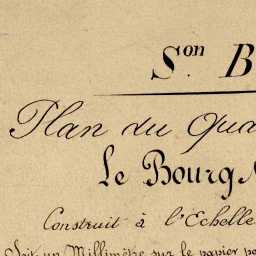 Son B
Plan du Qua
Le Bourg
Construit à l'Echelle
Soit un Millimètre sur le papier po